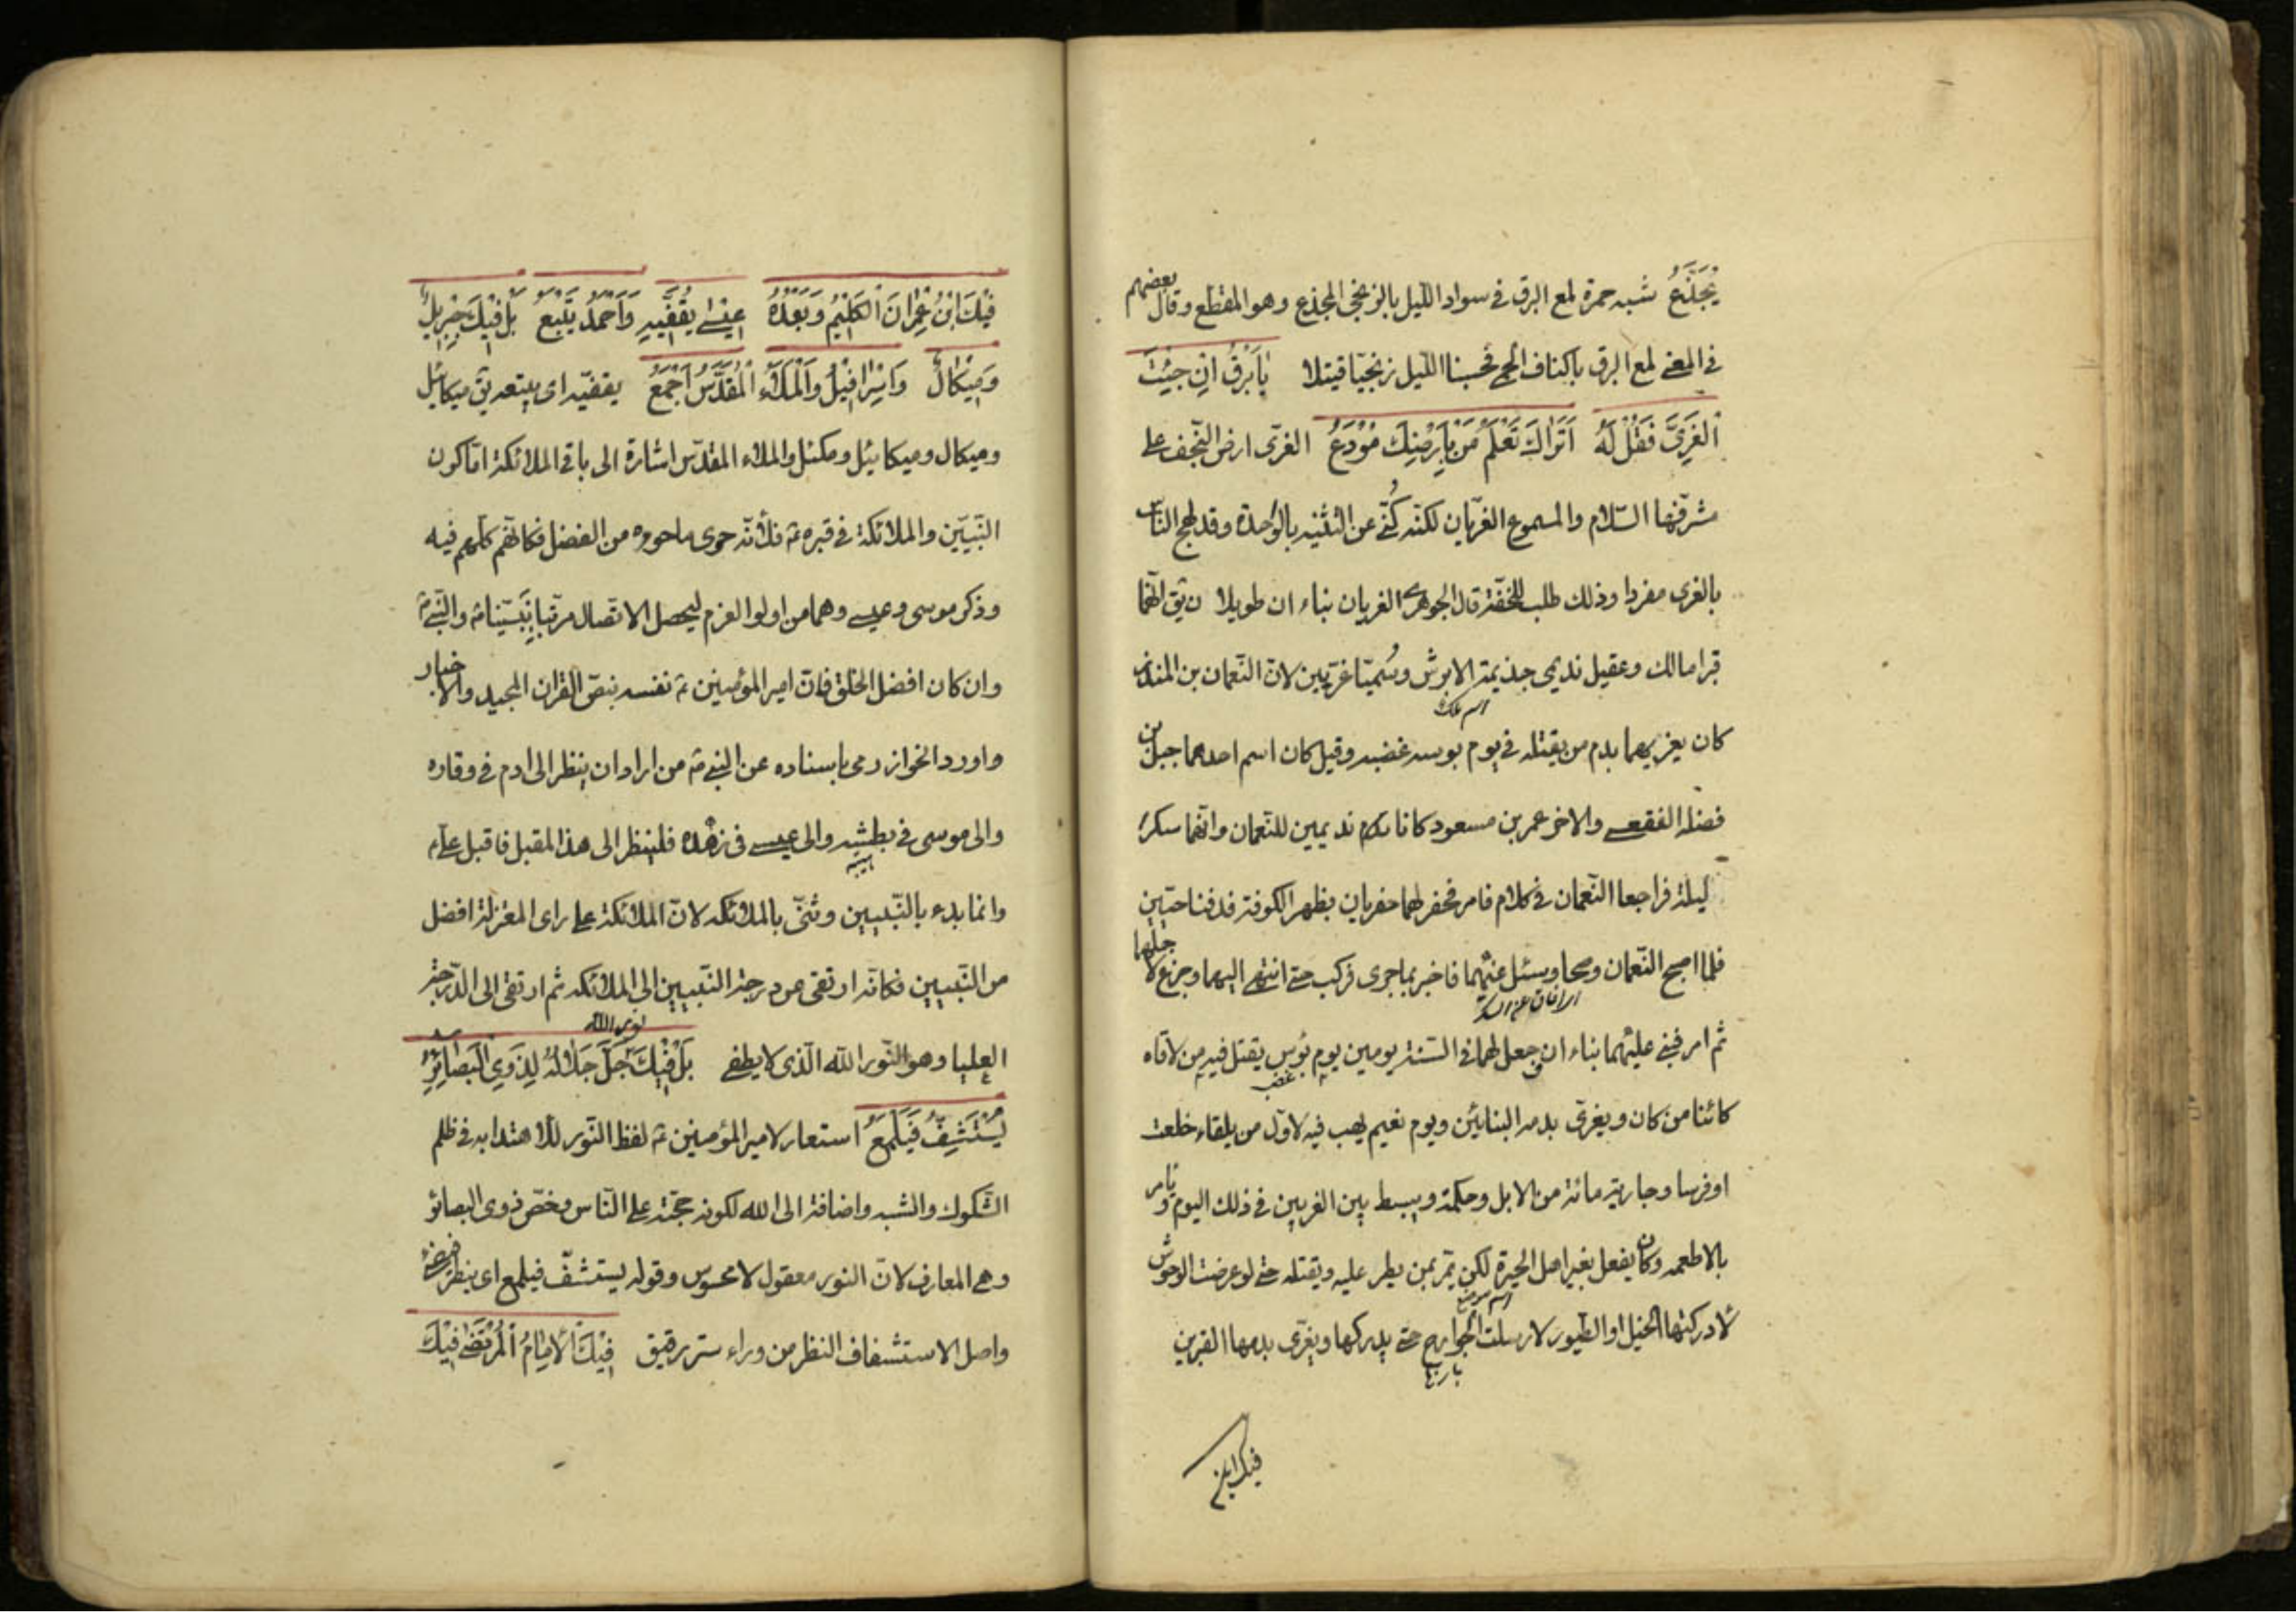 يُجَذَّعُ شبه حمرة لمع البرق فى سواد الليل بالزنجى المجذع وهو المقطع وقال بعضهم
فى المعنى لمع البرق باكناف الحمى فحسبنا الليل زنجيا قتيلا يَا بَرْقُ اِنْ جِئْتَ
اَلْغَرِىَّ فَقُلْ لَهُ اَتَرَاكَ تَعْلَمُ مَنْ بِاَرْضِكَ مُوْدَعُ الغرىّ ارض النّجف على
مشرّفها السّلام والمسموع الغريان لكنّه كُنّى عن التثنيه بالواحدة وقد لهج الناس
بالغرى مفردا وذلك طلب للخفّة قال الجوهرى الغريان بناء ان طويلا ن يق انّهما
قبرا مالك وعقيل نديمى جذيمة الابرش وسُمّيا غريّين لانّ النّعمان بن المنذر
اسم ملك
كان يغريهما بدم من يقتله فى يوم بوسه غضبه وقيل كان اسم احدهما جبل بن
فضلة الفقعسى والاخر عمر بن مسعود كانا نديمين للنّعمان وانّهما سكرا
ليلة فراجعا النّعمان فى كلام فامر فحفر لهما حفرتان بظهر الكوفة فدفنا حيّين
فلما اصبح النّعمان وصحا وسئل عنهما فاخبر بما جرى فركب حتى انتهى اليهما وجزع لاجلهما
ثم امر فبنى عليهما بناء ان وجعل لهما فى السّنة يومين يوم بُؤس يقتل فيه من لاقاه
غضب
كائنا من كان ويغرى بدمه البنائين ويوم نعيم يهب فيه لاوّل من يلقاه خلعت
او فرسا وجارية مائة من الابل وحكمة ويبسط بين الغريين فى ذلك اليوم ويامر
بالاطعمه وكان يفعل بغير اهل الحيرة لكن يمّر بمن يطر عليه ويقتله حتى لو عرضت الوحوش
اسم موضع
لادركتها الخيل او الطيور لارسلت الجوارح حتى يدركها ويغرّى بدمها القبرين
فيك ابن
فِيْكَ ابْنُ عِمْرَانَ اَلكَلِيْمُ وَبَعْدَهُ عِيْسٰى يُقَفِّيْهِ وَاَحْمَدُ يَتْبَعُ بَلْ فِيْكَ جِبْرِيْلُ
وَمِيْكَالُ وَاِسْرَافِيْلُ وَالْمَلَاءُ اَلْمُقَدَّسُ اَجْمَعُ يقفيّه اى يتبعه يق ميكائيل
وميكال وميكائيل ومكئل والملاء المقدّس اشارة الى باقى الملائكة امّا كون
النّبيّين والملائكة فى قبره ع فلانّه حوى ما حووه من الفضل فكانّهم كلّهم فيه
وذكر موسى وعيسى وهما من اولوا العزم ليحصل الاتصال مرتبا بنبيّنا ص والنّبى ص
وان كان افضل الخلق فانّ امير المؤمنين ع نفسه بنصّ القران المجيد والاخبار
واورد الخوازرمى باسناده عن النبى ص من اراد ان ينظر الى ادم فى وقاره
والى موسى فى بطشه والى عيسى فى زهده فلينظر الى هذا المقبل فاقبل على ع
هيبة
وانما بدء بالنّبيين وثنىّ بالملائكه لانّ الملائكة على راى المعتزلة افضل
من النّبيين فكانّه ارتقى عن درجة النّبيين الى الملائكه ثم ارتقى الى الدّرجة
نور الله
العليا وهو النّور الله الّذى لا يطفى بَلْ فِيْكَ جَلَّ جَلَالُهُ لِذَوِى الْبَصَائِرِ
يُسْتَشِفُّ فَيَلْمَعُ استعار لامير المؤمنين ع لفظ النّور للاهتدا به فى ظلم
الشّكوك والشبه واضافة الى الله لكونه حجّته على النّاس وخصّ ذوى البصائر
وهى المعارف لانّ النور معقول لا محسوس وقوله يستشفّ فيلمع اى ينظر
واصل الاستشفاف النظر من وراء ستر رقيق فِيْكَ اَلْاِمَامُ اَلْمُرْتَضٰى فِيْكَ